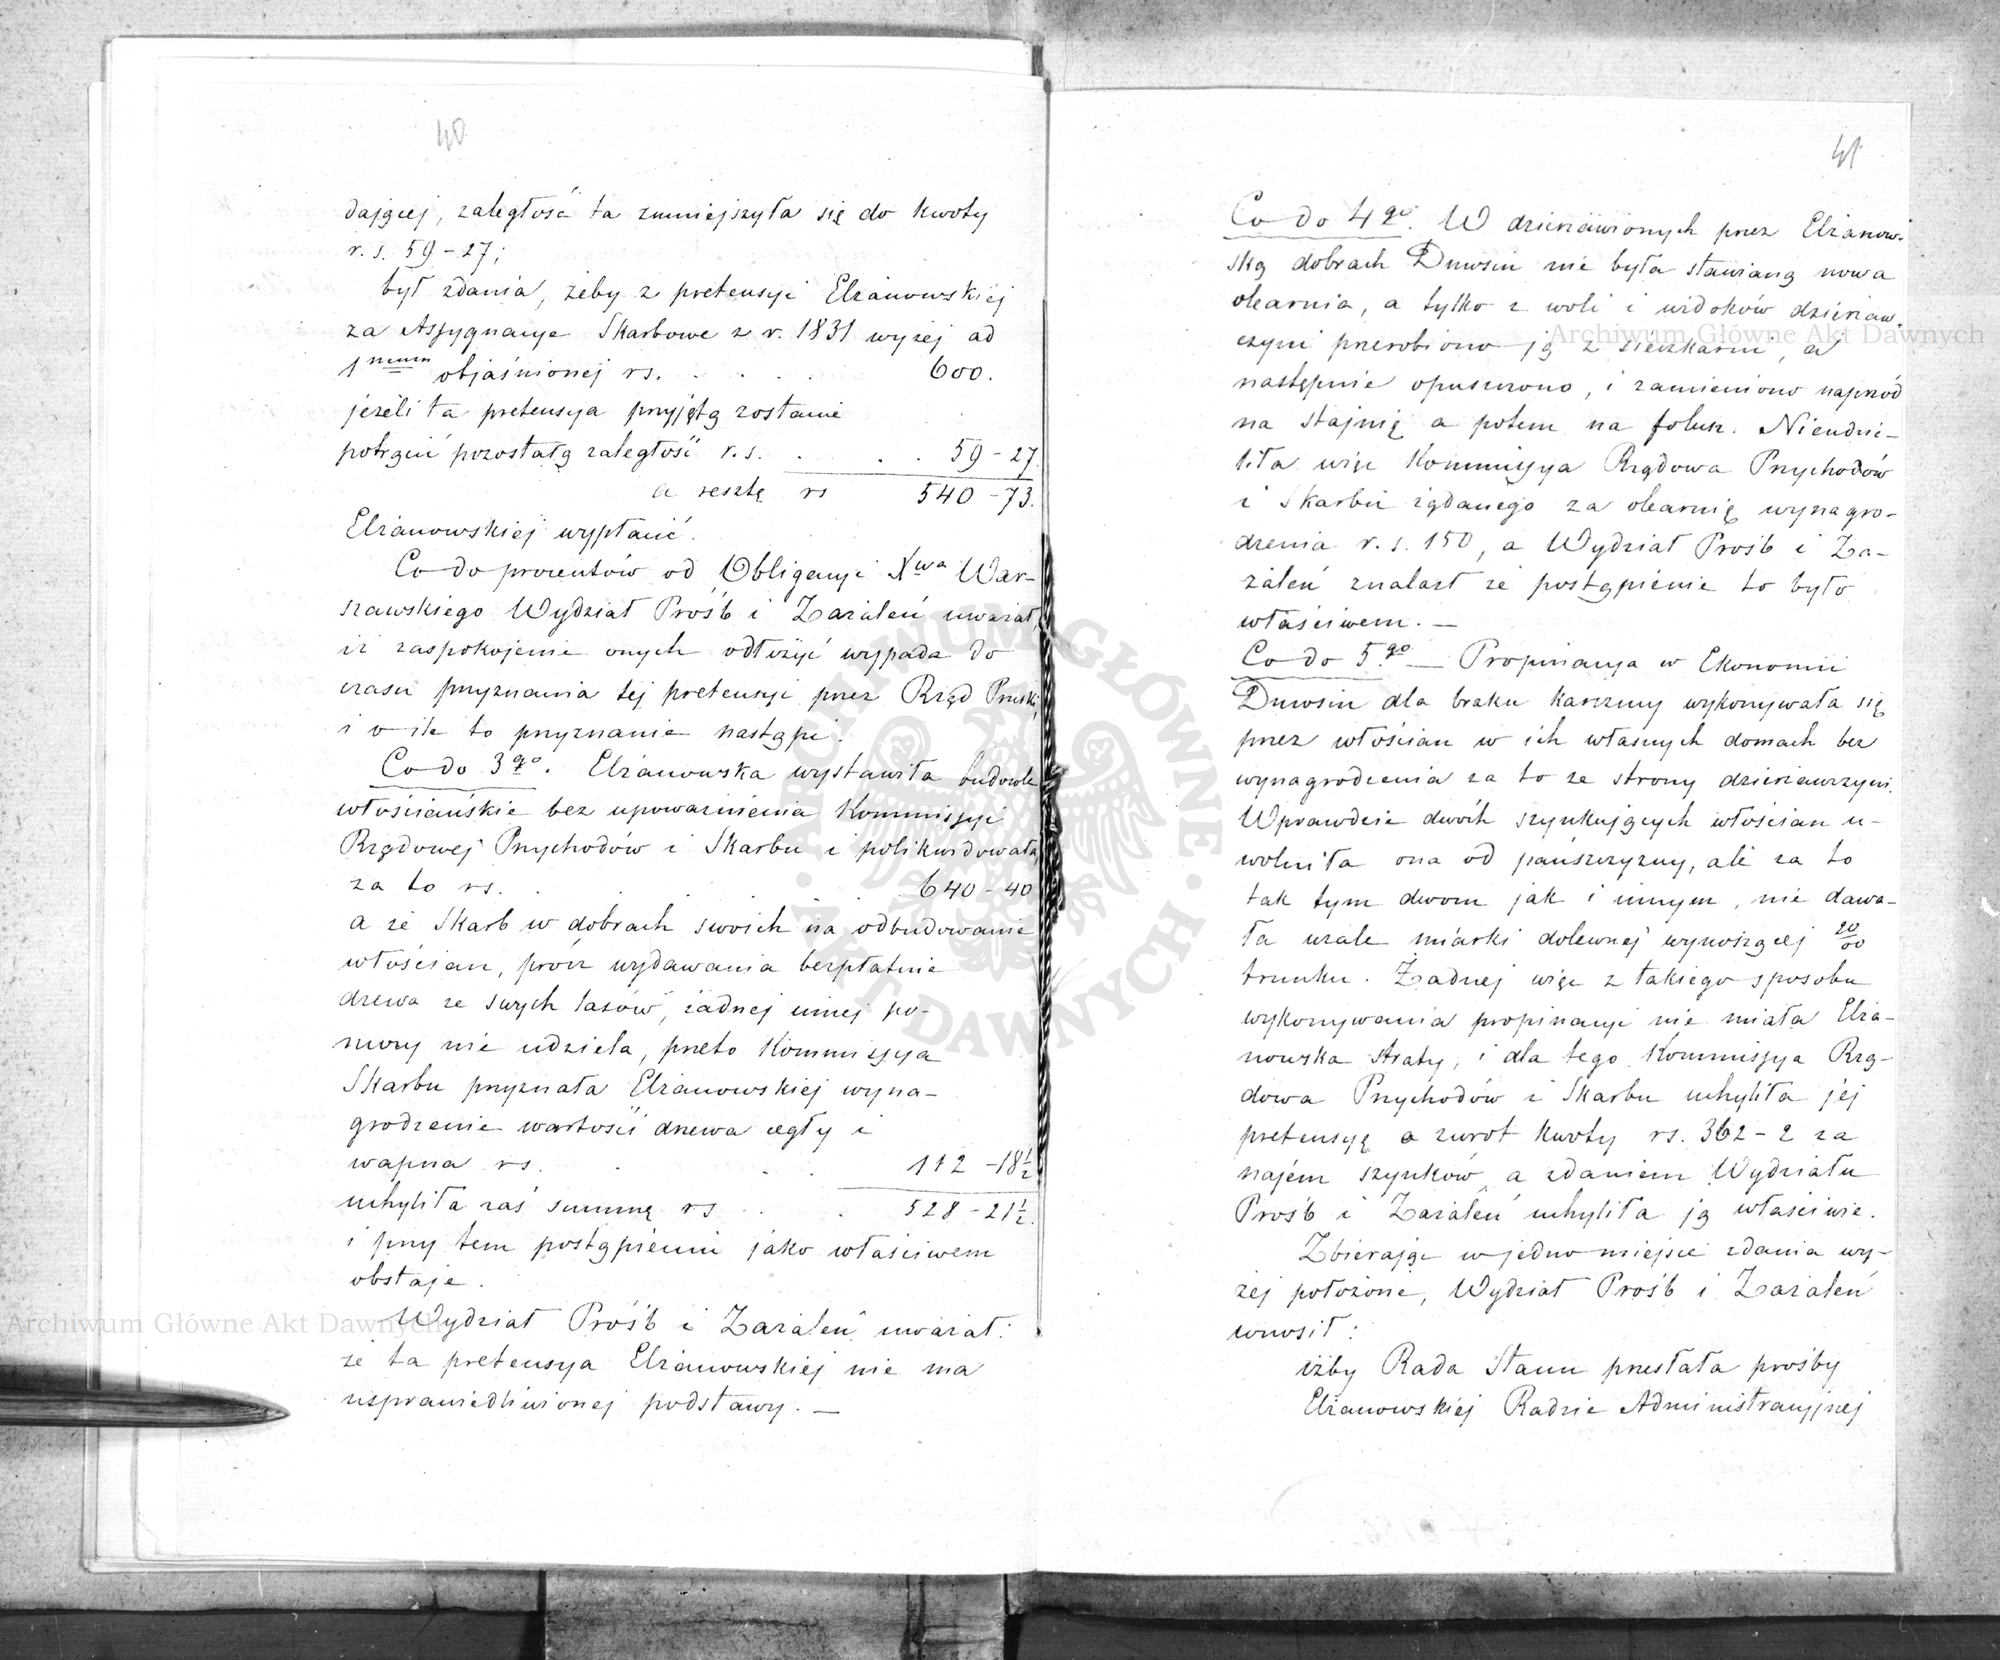 40
dającej, zaległość ta zmniejszyła się do kwoty
r. s. 59 - 27;
był zdania, żeby z pretensyi Elżanowskiej
za Assygnacye Skarbowe z r. 1831 wyżej ad
1mum objaśnionej rs. . . . . 600.
jeżeli ta pretensya przyjętą zostanie
potrącić pozostałą zaległość r.s. . . . 59 - 27.
a resztę rs 540 - 73.
Elżanowskiej wypłacić.
Co do procentów od Obligacyi Xwa War-
szawskiego Wydział Próśb i Zażaleń uważał,
iż zaspokojenie onych odłożyć wypada do
czasu przyznania tej pretensyi przez Rząd Pruski,
i o ile to przyznanie nastąpi.
Co do 3go. Elżanowska wystawiła budowle
włościańskie bez upoważnienia Kommissyi
Rządowej Przychodów i Skarbu i polikwidowała
za to rs. . . 640 - 40
a że Skarb w dobrach swoich na odbudowanie
włościan, prócz wydawania bezpłatnie
drzewa ze swych lasów, żadnej innej po-
mocy nie udziela, przeto Kommissya
Skarbu przyznała Elżanowskiej wyna-
grodzenie wartości drzewa cegły i
wapna rs. . . . 112 - 18½
uchyliła zaś summę rs . . 528 - 21½.
i przy tem postąpieniu jako właściwem
obstaje.
Wydział Próśb i Zażaleń uważał:
że ta pretensya Elżanowskiej nie ma
usprawiedliwionej podstawy. —
41
Co do 4go. W dzierżawionych przez Elżanow-
ską dobrach Duwsin nie była stawianą nowa
olearnia, a tylko z woli i widoków dzierżaw-
czyni przerobiono ją z sieczkarni, a
następnie opuszczono, i zamieniono naprzód
na stajnię a potem na folusz. Nieudzie-
liła więc Kommissya Rządowa Przychodów
i Skarbu żądanego za olearnię wynagro-
dzenia r. s. 150, a Wydział Próśb i Za-
żaleń znalazł że postąpienie to było
właściwem. —
Co do 5go — Propinacya w Ekonomii
Duwsin dla braku karczmy wykonywała się
przez włościan w ich własnych domach bez
wynagrodzenia za to ze strony dzierżawczyni.
Wprawdzie dwóch szynkujących włościan u-
wolniła ona od pańszczyzny, ale za to
tak tym dwom jak i innym, nie dawa-
ła wcale miarki dolewnej wynoszącej 20/00
trunku. Żadnej więc z takiego sposobu
wykonywania propinacyi nie miała Elża-
nowska straty, i dla tego Kommissya Rzą-
dowa Przychodów i Skarbu uchyliła jej
pretensyę o zwrot kwoty rs. 362 - 2 za
najem szynków, a zdaniem Wydziału
Próśb i Zażaleń uchyliła ją właściwie.
Zbierając w jedno miejsce zdania wy-
żej położone, Wydział Próśb i Zażaleń
wnosił:
iżby Rada Stanu przesłała prośby
Elżanowskiej Radzie Administracyjnej
Archiwum Główne Akt Dawnych
Archiwum Główne Akt Dawnych
ARCHIWUM GŁÓWNE AKT DAWNYCH